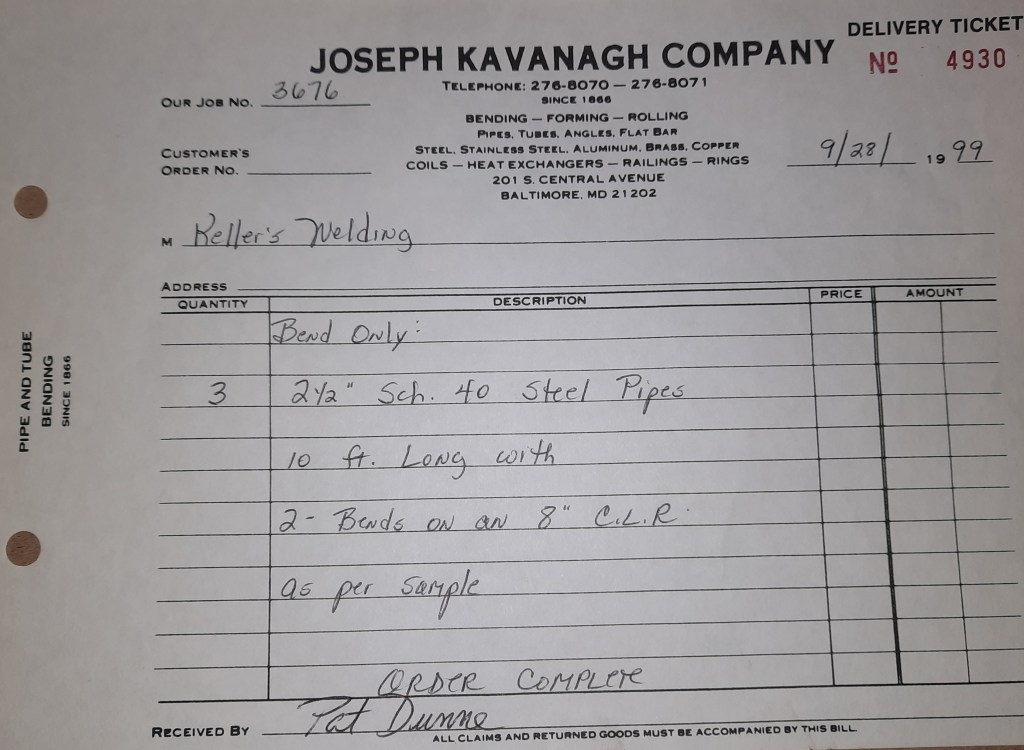 DELIVERY TICKET
JOSEPH KAVANAGH COMPANY
Nº 4930
TELEPHONE: 276-8070 — 276-8071
OUR JOB NO. 3676
SINCE 1866
BENDING — FORMING — ROLLING
PIPES, TUBES, ANGLES, FLAT BAR
STEEL, STAINLESS STEEL, ALUMINUM, BRASS, COPPER
COILS — HEAT EXCHANGERS — RAILINGS — RINGS
201 S. CENTRAL AVENUE
BALTIMORE, MD 21202
CUSTOMER'S
ORDER NO.
9/28/ 1999
M Keller's Welding
ADDRESS
QUANTITY DESCRIPTION PRICE AMOUNT
Bend Only:
3 2½" Sch. 40 Steel Pipes
10 ft. Long with
2- Bends on an 8" C.L.R.
as per sample
ORDER COMPLETE
RECEIVED BY Pat Dunne
ALL CLAIMS AND RETURNED GOODS MUST BE ACCOMPANIED BY THIS BILL
PIPE AND TUBE
BENDING
SINCE 1866